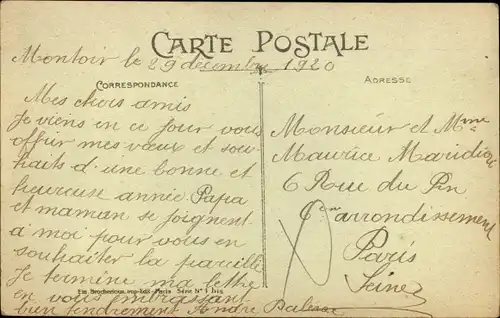 CARTE POSTALE
Montoir le 29 décembre 1920
CORRESPONDANCE
ADRESSE
Mes chers amis
Je viens en ce jour vous
offrir mes vœux et sou-
haits d'une bonne et
heureuse année Papa
et maman se joignent
a moi pour vous en
souhaiter la pareille
Je termine ma lettre
en vous embrassant
bien tendrement André
Monsieur et Mme
Maurice
6 Rue du
6em arrondissement
Paris
Seine